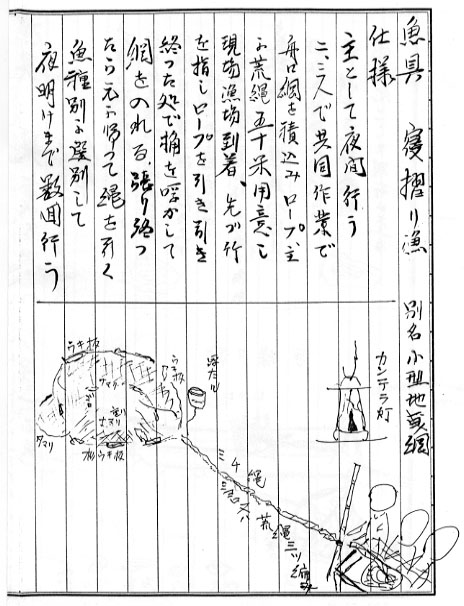 漁具 寝摺り漁 別名 小型地真網
仕様
主として夜間行う
二、三人で共同作業で
舟に網を積込みロープ、又
は荒縄五十米用意し
現場漁場到着、先ず竹
を指しロープを引き引き
終った処で桶を浮かして
網を入れる、張り終っ
たら元に帰って縄を引く
魚種別に選別して
夜明けまで数回行う
カンテラ灯
浮たる
ウキ板
ウキ板
タマリ
ウキ板
縄
荒縄
三ツ編